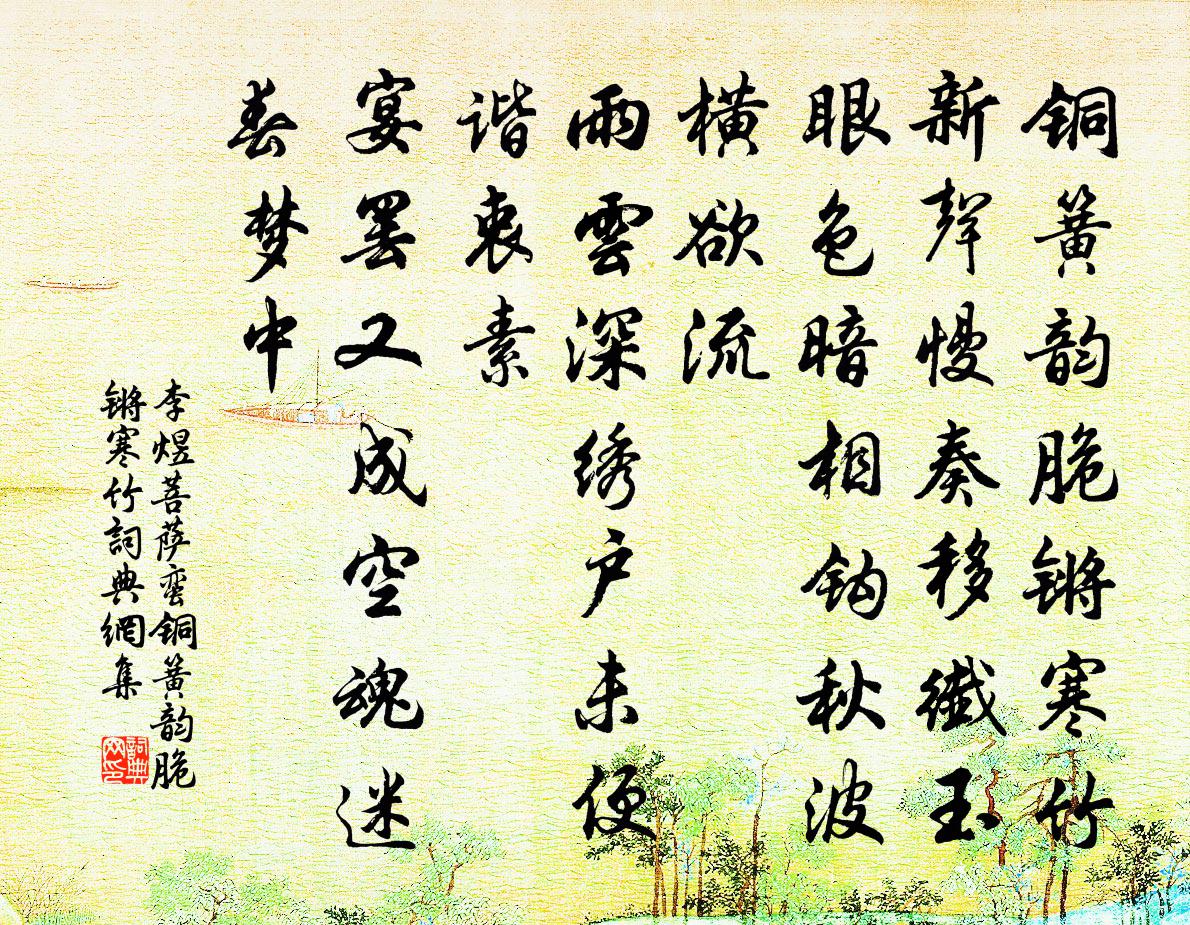 铜簧韵脆锵寒竹
新聲慢奏移纖玉
眼色暗相钩秋波
横欲流
雨雲深绣户未便
谐衷素
宴罢又成空魂迷
春梦中
李煜菩萨蛮铜簧韵脆
锵寒竹詞典網集
詞典
网印